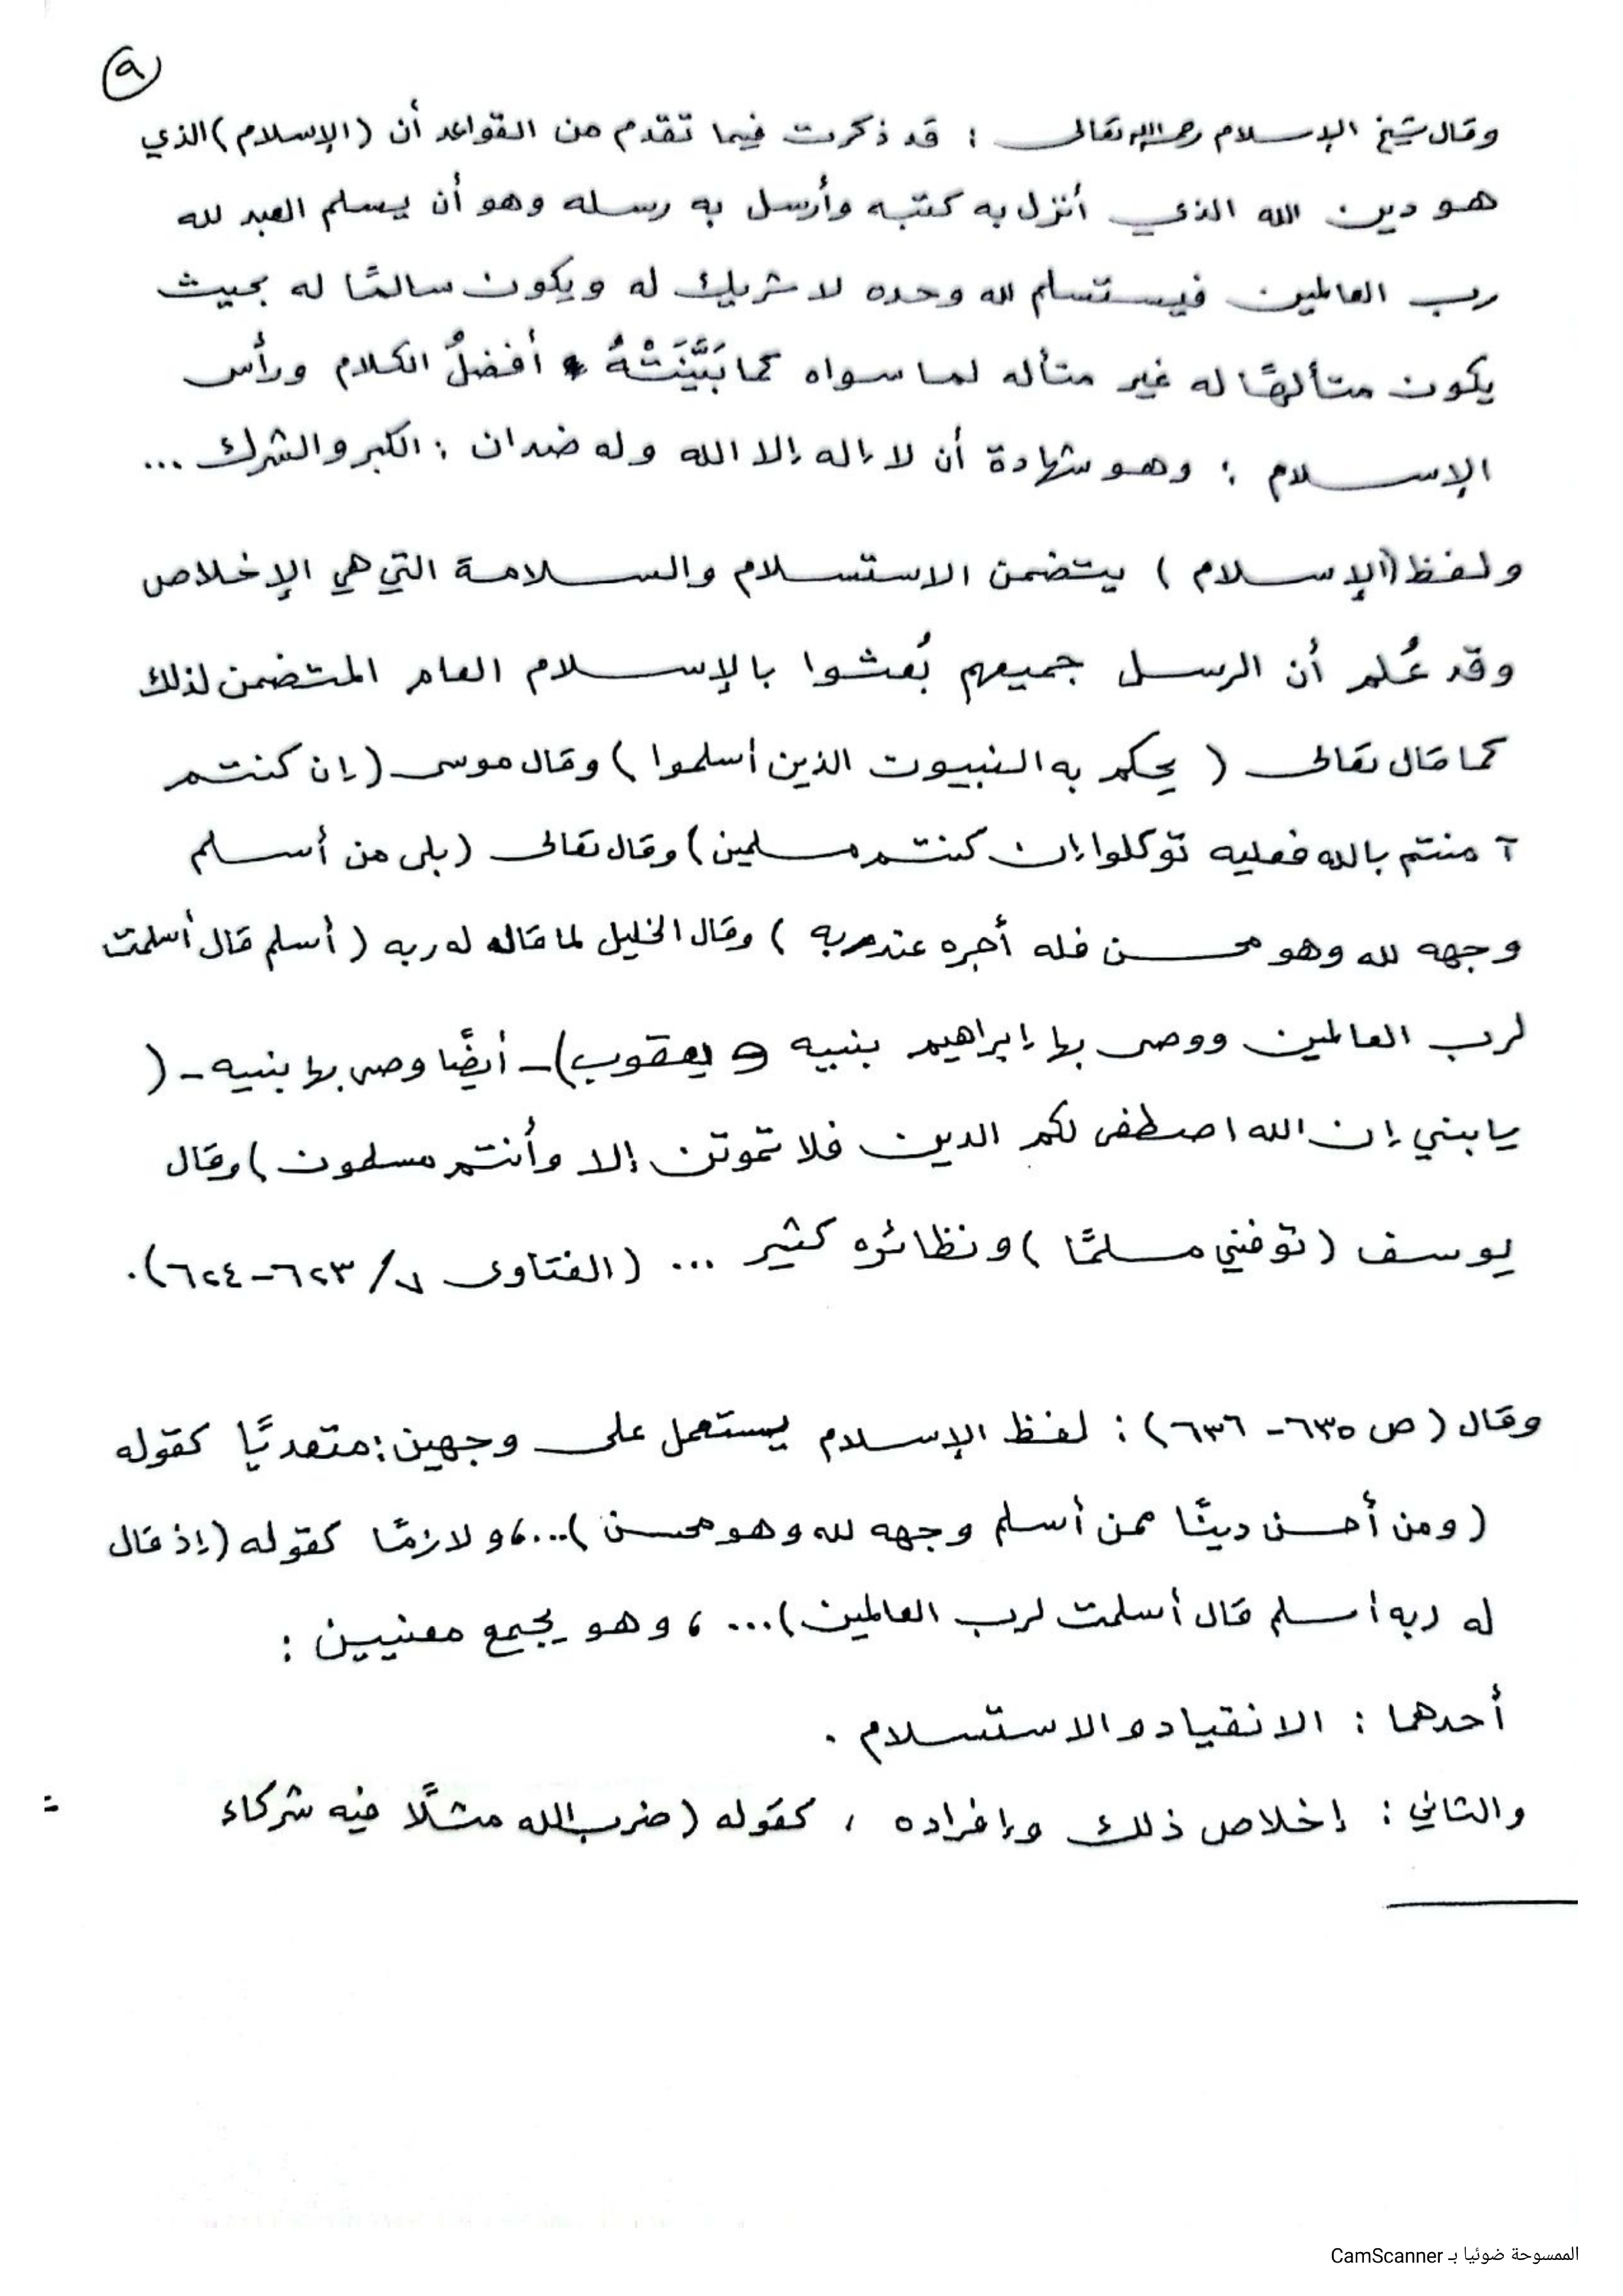 ٩
وقال شيخ الإسلام رحمه الله تعالى : قد ذكرت فيما تقدم من القواعد أن (الإسلام) الذي
هو دين الله الذي أنزل به كتبه وأرسل به رسله وهو أن يسلم العبد لله
رب العالمين فيستسلم لله وحده لا شريك له ويكون سالمًا له بحيث
يكون متألهًا له غير متأله لما سواه كما بَيَّنَتْهُ أفضلُ الكلام ورأس
الإسلام : وهو شهادة أن لا إله إلا الله وله ضدان : الكبر والشرك ...
ولفظ (الإسلام) يتضمن الاستسلام والسلامة التي هي الإخلاص
وقد عُلم أن الرسل جميعهم بُعثوا بالإسلام العام المتضمن لذلك
كما قال تعالى ( يحكم به النبيون الذين أسلموا ) وقال موسى (إن كنتم
آمنتم بالله فعليه توكلوا إن كنتم مسلمين) وقال تعالى (بلى من أسلم
وجهه لله وهو محسن فله أجره عند ربه ) وقال الخليل لما قال له ربه ( أسلم قال أسلمت
لرب العالمين ووصى بها إبراهيم بنيه ويعقوب) - أيضًا وصى بها بنيه - (
يا بني إن الله اصطفى لكم الدين فلا تموتن إلا وأنتم مسلمون ) وقال
يوسف ( توفني مسلمًا ) ونظائره كثير ... (الفتاوى ٧/ ٦٢٣-٦٢٤).
وقال ( ص ٦٣٥- ٦٣٦) : لفظ الإسلام يستعمل على وجهين : متعديًا كقوله
( ومن أحسن دينًا ممن أسلم وجهه لله وهو محسن )...، ولازمًا كقوله (إذ قال
له ربه أسلم قال أسلمت لرب العالمين)... ، وهو يجمع معنيين :
أحدهما : الانقياد والاستسلام .
والثاني : إخلاص ذلك وإفراده ، كقوله ( ضرب الله مثلًا فيه شركاء =
الممسوحة ضوئيا بـ CamScanner